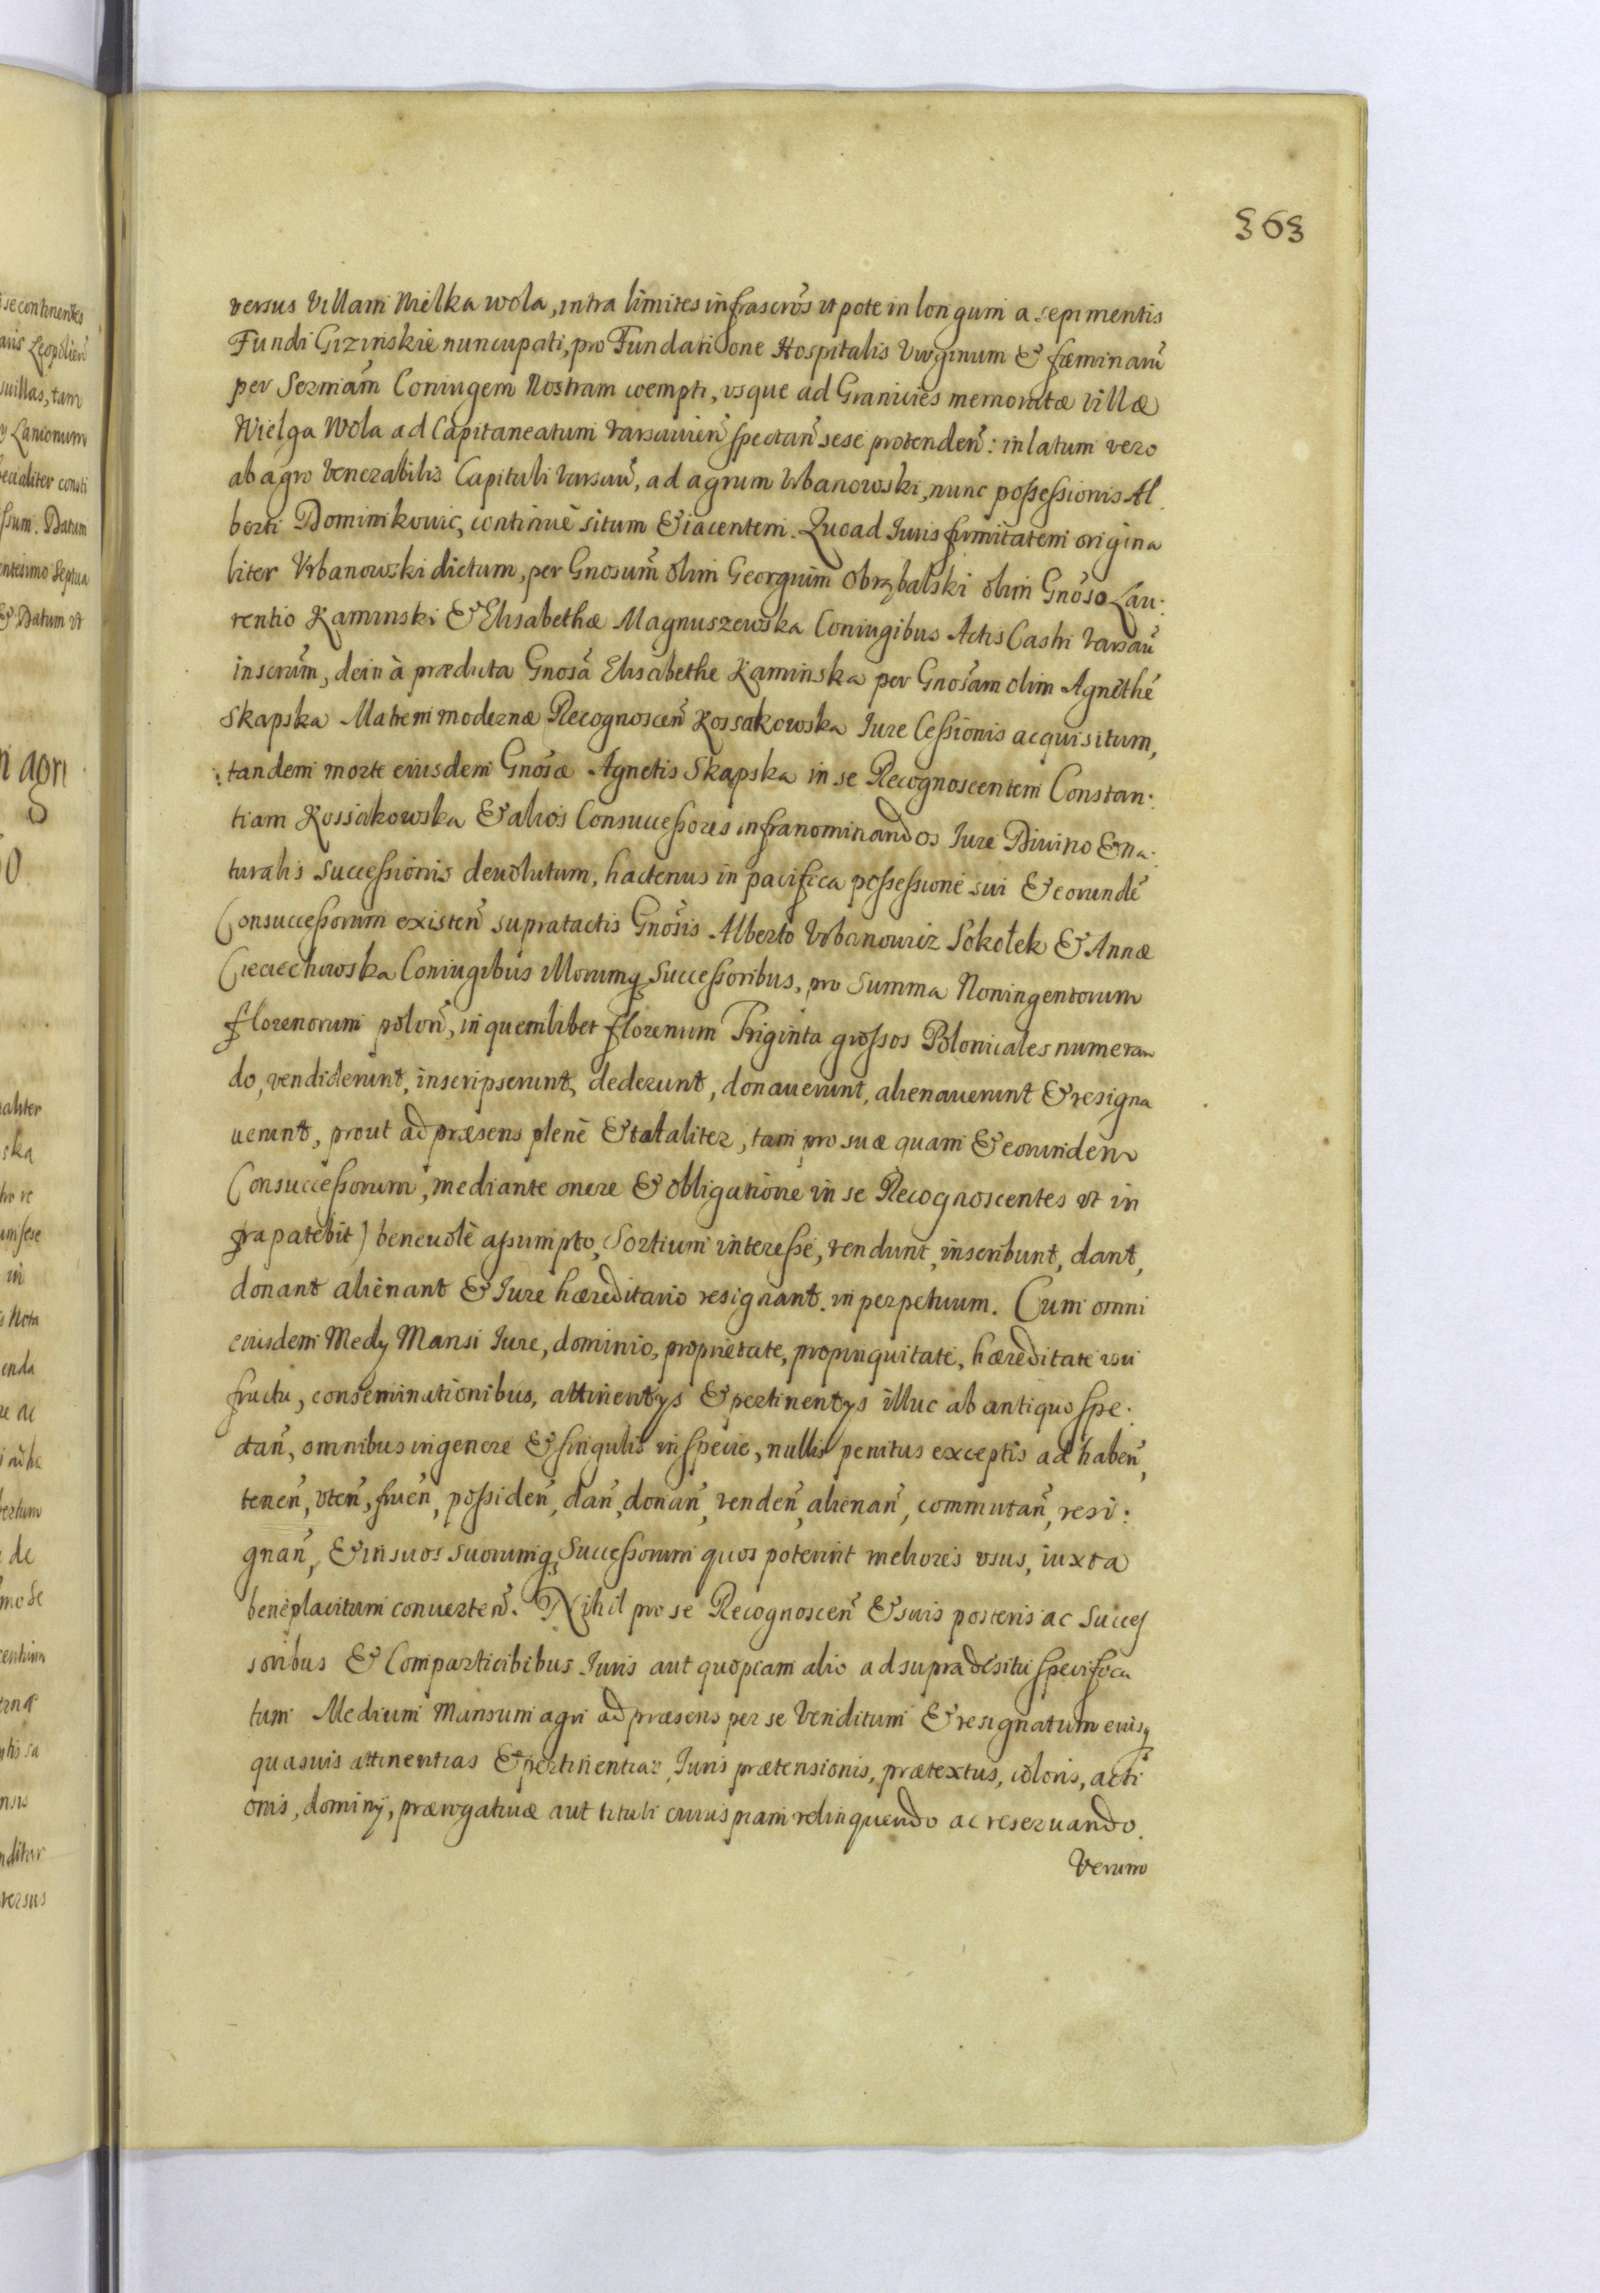 563
versus Villam Wielka wola, intra limites infrascrõs vt pote in longum a sepimentis
Fundi Gizinskie nuncupati, pro Fundatione Hospitalis Virginum & fæminarũ
per Sermãm Coniugem Nostram coempti, vsque ad Granicies memoratæ villæ
Wielga Wola ad Capitaneatum Varsauien̄ spectan̄ sese protenden̄: in latum vero
ab agro Venerabilis Capituli Varsau̅, ad agrum Vrbanowski, nunc possessionis Al
berti Dominikouic, continuè situm & iacentem. Quoad Iuris firmitatem origina
liter Vrbanowski dictum, per Gnosum̃ olim Georgium Obrębalski olim Gnõso Lau:
rentio Kaminski & Elisabethæ Magnuszewska Coniugibus Actis Castri Varsau̅
inscrũm, dein à prædicta Gnosã Elisabethe Kaminska per Gnosãm olim Agnethẽ
Skapska Matrem modernæ Recognoscen̄ Kossakowska Iure Cessionis acquisitum,
tandem morte eiusdem Gnõsæ Agnetis Skapska in se Recognoscentem Constan:
tiam Kossakowska & alios Consuccessores infranominandos Iure Diuino & na:
turalis successionis deuolutum, hactenus in pacifica possessione sui & eorundẽ
Consuccessorum existen̄ supratactis Gnõsis Alberto Vrbanowicz Sokołek & Annæ
Cieciechowska Coniugibus illorumq; Successoribus, pro Summa Noningentorum
florenorum polon̄, in quemlibet florenum Triginta grossos Polonicales numeran
do, vendiderunt, inscripserunt, dederunt, donauerunt, alienauerunt & resigna
uerunt, prout ad præsens plenè & totaliter, tam pro suæ quam & eorundem
Consuccessorum, mediante onere & obligatione in se Recognoscentes vt in
fra patebit) beneuolè assumpto, Sortium interesse, vendunt, inscribunt, dant,
donant alienant & Iure hæreditario resignant in perpetuum. Cum omni
eiusdem Medy Mansi Iure, dominio, proprietate, propinquitate, hæreditate vsu
fructu, conseminationibus, attinentys & pertinentys illuc ab antiquo spe:
ctan̄, omnibus in genere & singulis in specie, nullis penitus exceptis ad haben̄,
tenen̄, vten̄, fruen̄, possiden̄, dan̄, donan̄, venden̄, alienan̄, commutan̄, resi:
gnan̄, & in suos suorumq; Successorum quos poterint meliores vsus, iuxta
beneplacitum conuerten̄. Nihil pro se Recognoscen̄ & suis posteris ac Succes
soribus & Comparticibibus Iuris aut quopiam alio ad supra de situ specifica
tum Medium Mansum agri ad præsens per se Venditum & resignatum eiusq;
quasuis attinentias & pertinentias, Iuris prætensionis, prætextus, coloris, acti
onis, dominij, prærogatiuæ aut tituli cuiuspiam relinquendo ac reseruando.
Verum